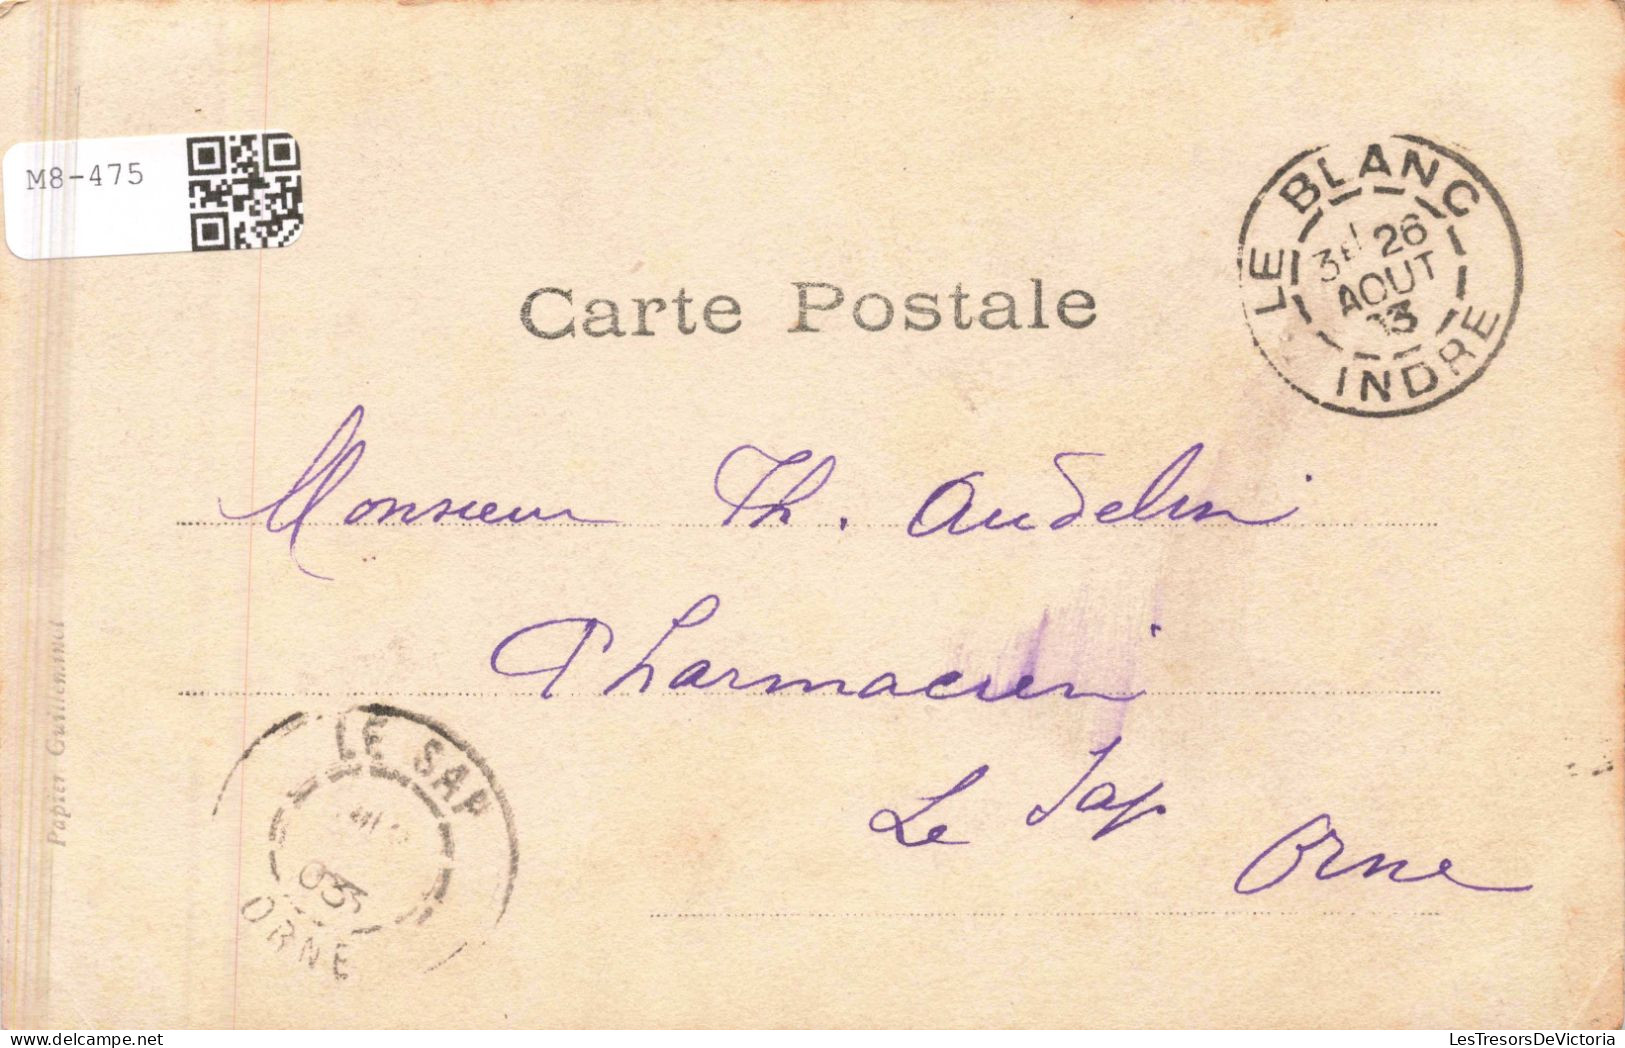 M8-475
LE BLANC
26
AOUT
INDRE
Carte Postale
Monsieur Th. Audelin
Pharmacien
Le Sap
Orne
LE SAP
03
ORNE
Papier Guilleminot
LesTresorsDeVictoria